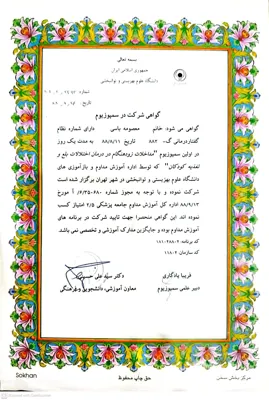 بسمه تعالی
جمهوری اسلامی ایران
دانشگاه علوم بهزیستی و توانبخشی
شماره
تاریخ
گواهی شرکت در سمپوزیوم
گواهی می شود: خانم معصومه یاسی دارای شماره نظام
گفتاردرمانی گ- ۸۸۲ تاریخ ۸۸/۸/۱۱ به مدت یک روز
در اولین سمپوزیوم "مداخلات زودهنگام در درمان اختلالات بلع و
تغذیه کودکان" که توسط اداره آموزش مداوم و بازآموزی های
دانشگاه علوم بهزیستی و توانبخشی در شهر تهران برگزار شده است
شرکت نموده و با توجه به مجوز شماره آ مورخ
۸۸/۹/۱۳ اداره کل آموزش مداوم جامعه پزشکی ۲/۵ امتیاز کسب
نموده اند این گواهی منحصرا جهت تایید شرکت در برنامه های
آموزش مداوم بوده و جایگزین مدارک آموزشی و تخصصی نمی باشد.
کد برنامه:
کد سازمان ۱۱۸۰۲
فریبا یادگاری
دبیر علمی سمپوزیوم
دکتر سید علی حسینی
معاون آموزشی، دانشجویی و فرهنگی
Sokhan
حق چاپ محفوظ
مرکز پخش سخن